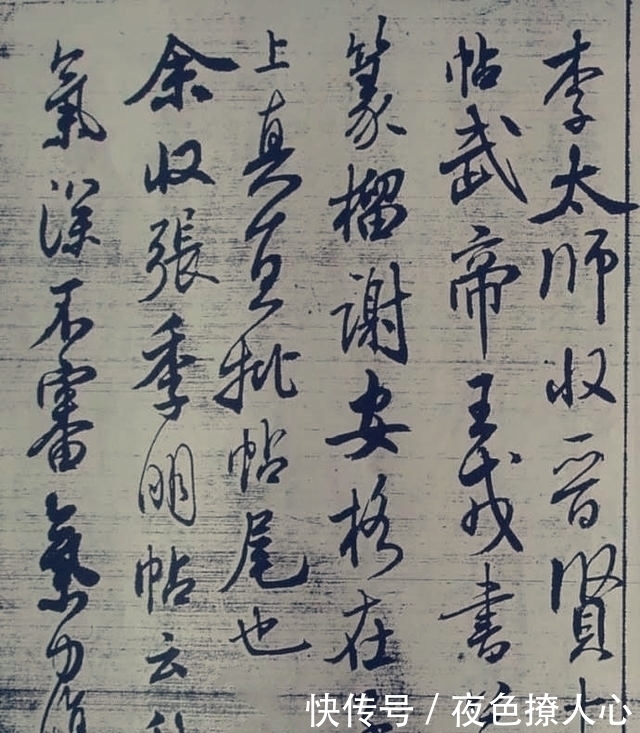 李太師收晉賢
帖武帝王戎書
篆榴謝安格在
上真宜批帖尾也
余收張季明帖云
氣深不審氣力
快传号 / 夜色撩人心